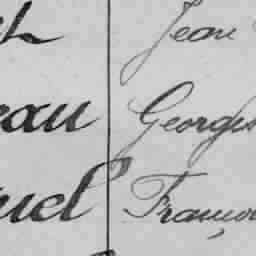 Jean
eau Georges
uel François